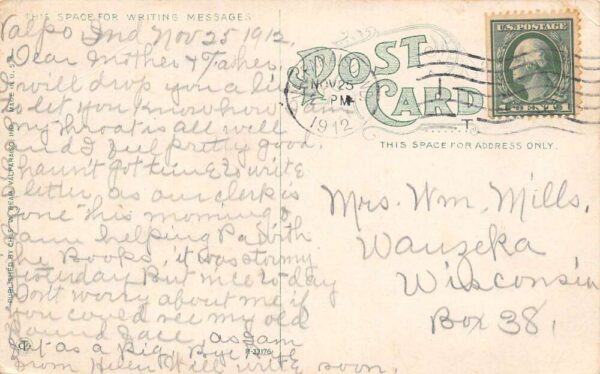 THIS SPACE FOR WRITING MESSAGES
Valpo Ind Nov 25 1912,
Dear Mother & Father,
I will drop you a line
to let you know how
my throat is all well
and I feel pretty good.
haun't got time to write
letter, as our clerk is
gone this morning &
am helping Pa with
the Books, it was stormy
yesterday But nice to day
Dont worry about me if
you could see my old
round face, as I am
fat as a pig, Bye
from Helen Will write soon.
PUBLISHED BY VALPARAISO, IND.
POST
CARD
NOV 25
PM
1912
U.S. POSTAGE
1 CENT 1
THIS SPACE FOR ADDRESS ONLY.
Mrs. Wm. Mills,
Wauzeka
Wisconsin
Box 38,
R-23176